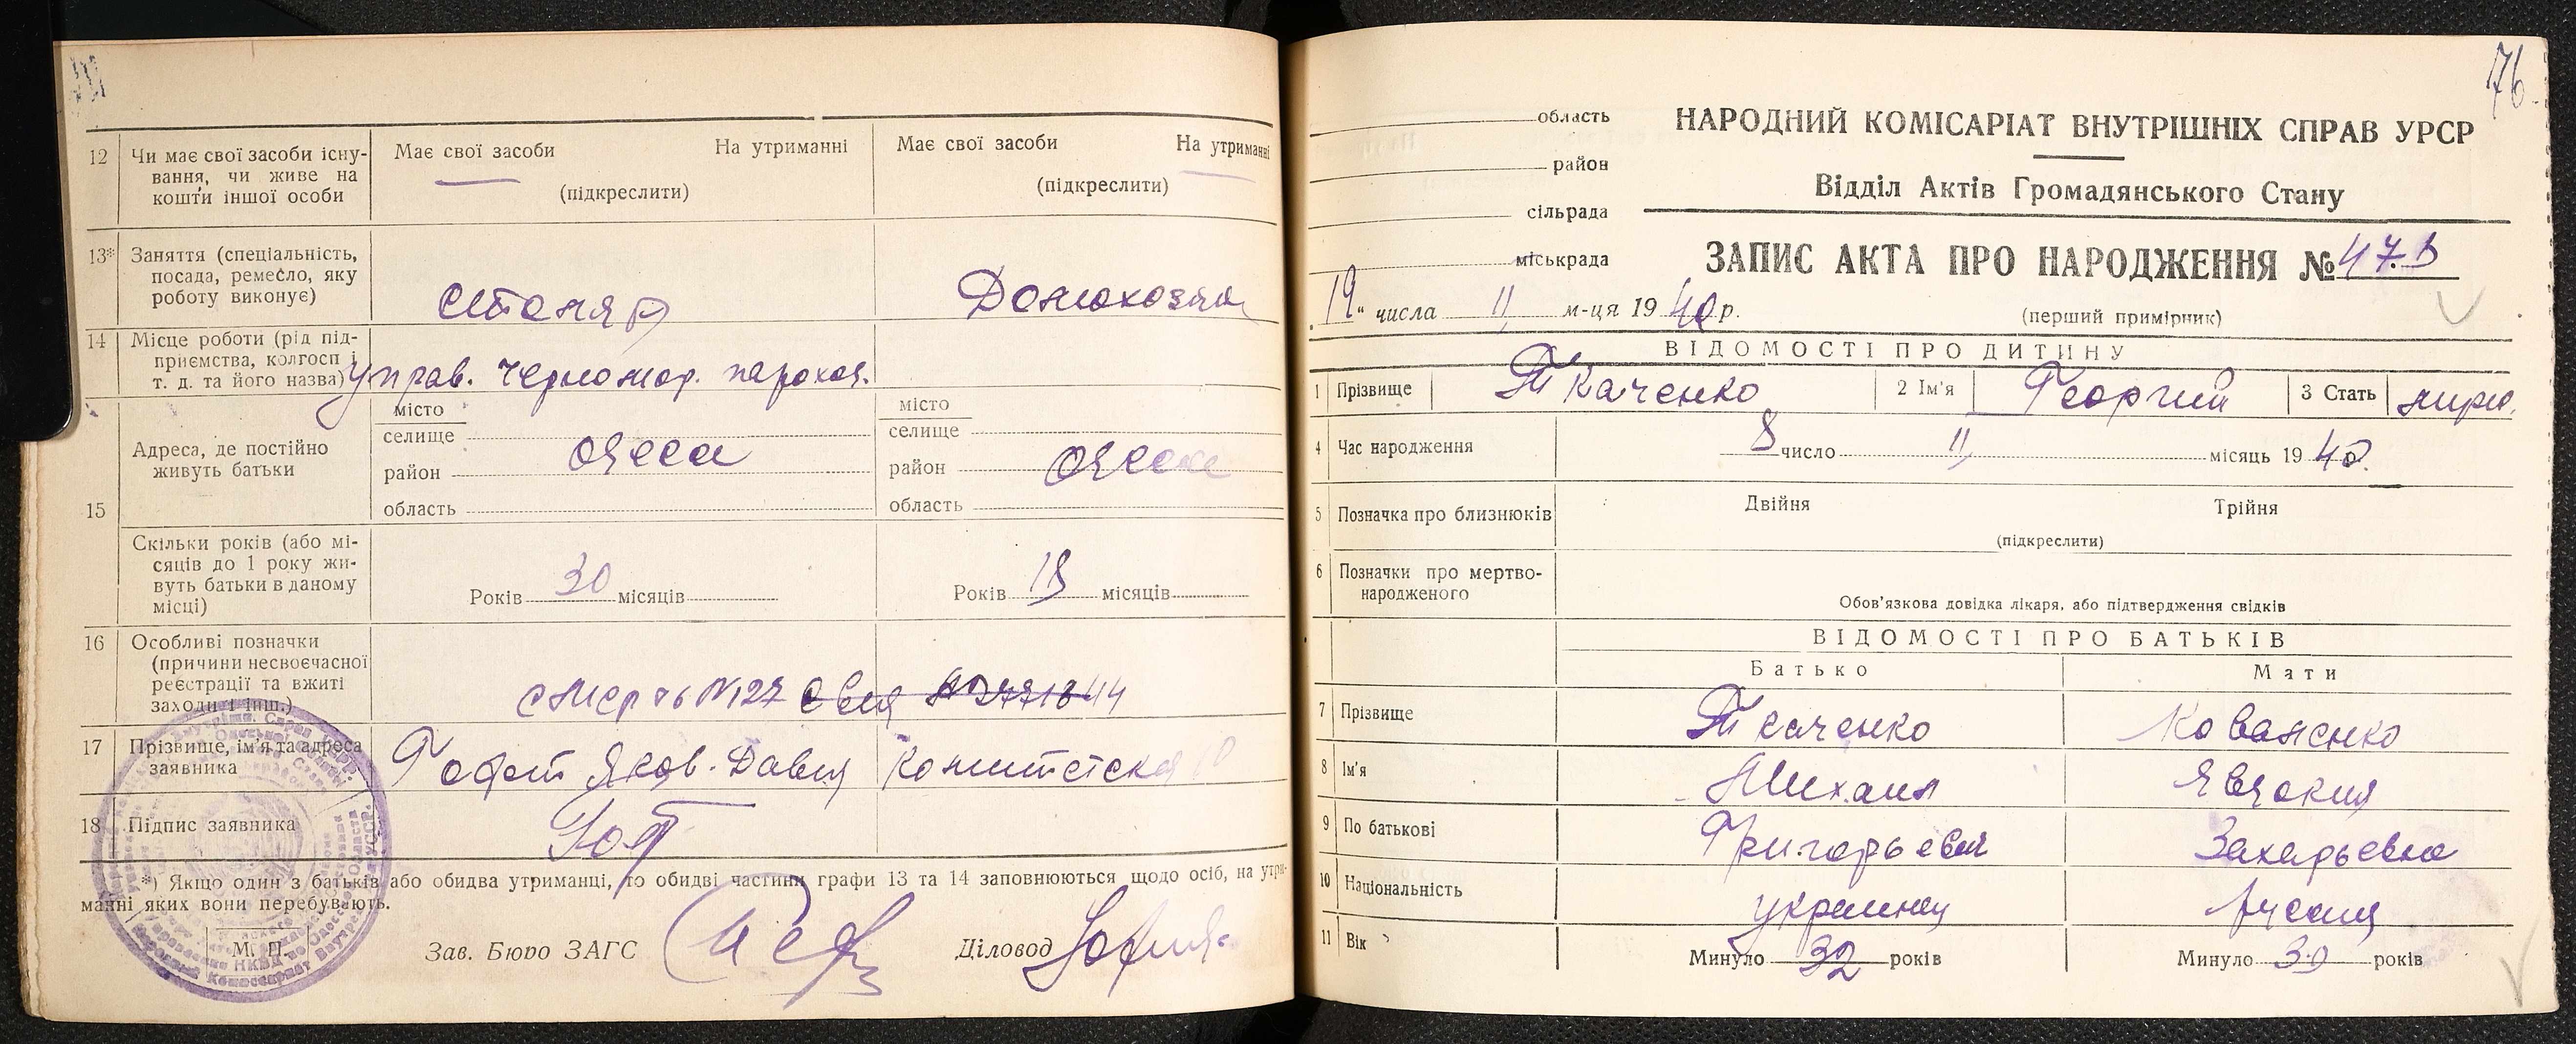 12 Чи має свої засоби існу-
вання, чи живе на
кошти іншої особи
Має свої засоби На утриманні
(підкреслити)
Має свої засоби На утриманні
(підкреслити)
13* Заняття (спеціальність,
посада, ремесло, яку
роботу виконує)
столяр
Домохозяй
14 Місце роботи (рід під-
приємства, колгосп і
т. д. та його назва)
Управ. Черномор. пароход.
15 Адреса, де постійно
живуть батьки
місто
селище
район
область
Одесса
місто
селище
район
область
Одесса
Скільки років (або мі-
сяців до 1 року жи-
вуть батьки в даному
місці)
Років 30 місяців
Років місяців
16 Особливі позначки
(причини несвоєчасної
реєстрації та вжиті
заходи і інш.)
смерть №127
17 Прізвище, ім'я та адреса
заявника
Яков. Давид
18 Підпис заявника
*) Якщо один з батьків або обидва утриманці, то обидві частини графи 13 та 14 заповнюються щодо осіб, на утри-
манні яких вони перебувають.
М. П.
Зав. Бюро ЗАГС
Діловод
76
область
район
сільрада
міськрада
НАРОДНИЙ КОМІСАРІАТ ВНУТРІШНІХ СПРАВ УРСР
Відділ Актів Громадянського Стану
ЗАПИС АКТА ПРО НАРОДЖЕННЯ №
19 " числа 11 м-ця 1940 р.
(перший примірник)
ВІДОМОСТІ ПРО ДИТИНУ
1 Прізвище Ткаченко 2 Ім'я Георгий 3 Стать
4 Час народження 8 число 11 місяць 1940 р.
5 Позначка про близнюків Двійня Трійня
(підкреслити)
6 Позначки про мертво-
народженого
Обов'язкова довідка лікаря, або підтвердження свідків
ВІДОМОСТІ ПРО БАТЬКІВ
Батько Мати
7 Прізвище Ткаченко Коваленко
8 Ім'я Михаил Явдокия
9 По батькові Григорьевич Захарьевна
10 Національність украинец
11 Вік Минуло 32 років Минуло 30 років